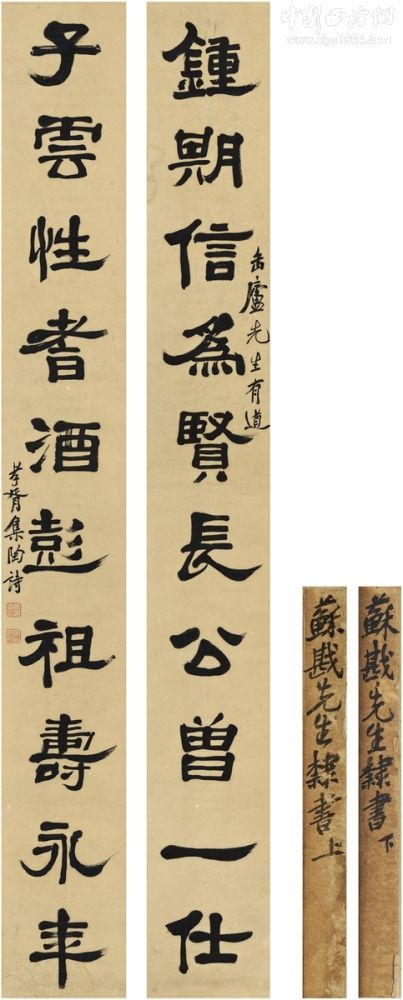 中国西泠网
www.xlys1904.com
鍾期信為賢長公曾一仕
缶廬先生有道
子雲性耆酒彭祖壽永年
孝胥集陶詩
蘇戡先生隸書上
蘇戡先生隸書下